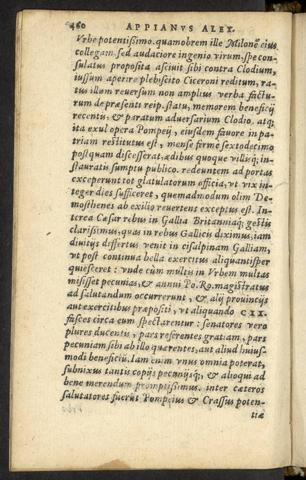 460 APPIANVS ALEX.
Vrbe potentissimo. quamobrem ille Milonē eius
collegam, sed audaciore ingenio virum, spe con-
sulatus proposita asciuit sibi contra Clodium,
iussum aperire plebiscito Ciceroni reditum, ra-
tus illum reuersum non amplius verba factu-
rum de præsenti reip. statu, memorem beneficij
recentis & paratum aduersarium Clodio. atq;
ita exul opera Pompeij, eiusdem fauore in pa-
triam restitutus est, mense fermè sextodecimo
postquam discesserat, ædibus quoque villisq; in-
stauratis sumptu publico. redeuntem ad portas
exceperunt tot glatulatorum officia, vt vix in-
teger dies sufficeret, quemadmodum olim De-
mosthenes ab exilio reuertens exceptus est. In-
terea Cæsar rebus in Gallia Britanniaq; gestis
clarissimus, quas in rebus Gallicis diximus, iam
diuitijs differtus venit in cisalpinam Galliam,
vt post continua bella exercitus aliquantisper
quiesceret: vnde cùm multis in Vrbem multas
misisset pecunias, & annui Po. Ro. magistratus
ad salutandum occurrerunt, & alij prouincijs
aut exercitibus præpositi, vt aliquando CXX.
fasces circa eum spectarentur: senatores vero
plures ducentis, pars referentes gratiam, pars
pecuniam sibi ab illo quærentes, aut aliud huius-
modi beneficiū. Iam enim vnus omnia poterat,
subnixus tantis copijs pecunijsq; & alioqui ad
bene merendum promptissimus. inter cæteros
salutatores fuerūt Pompeius & Crassus poten-
tiæ